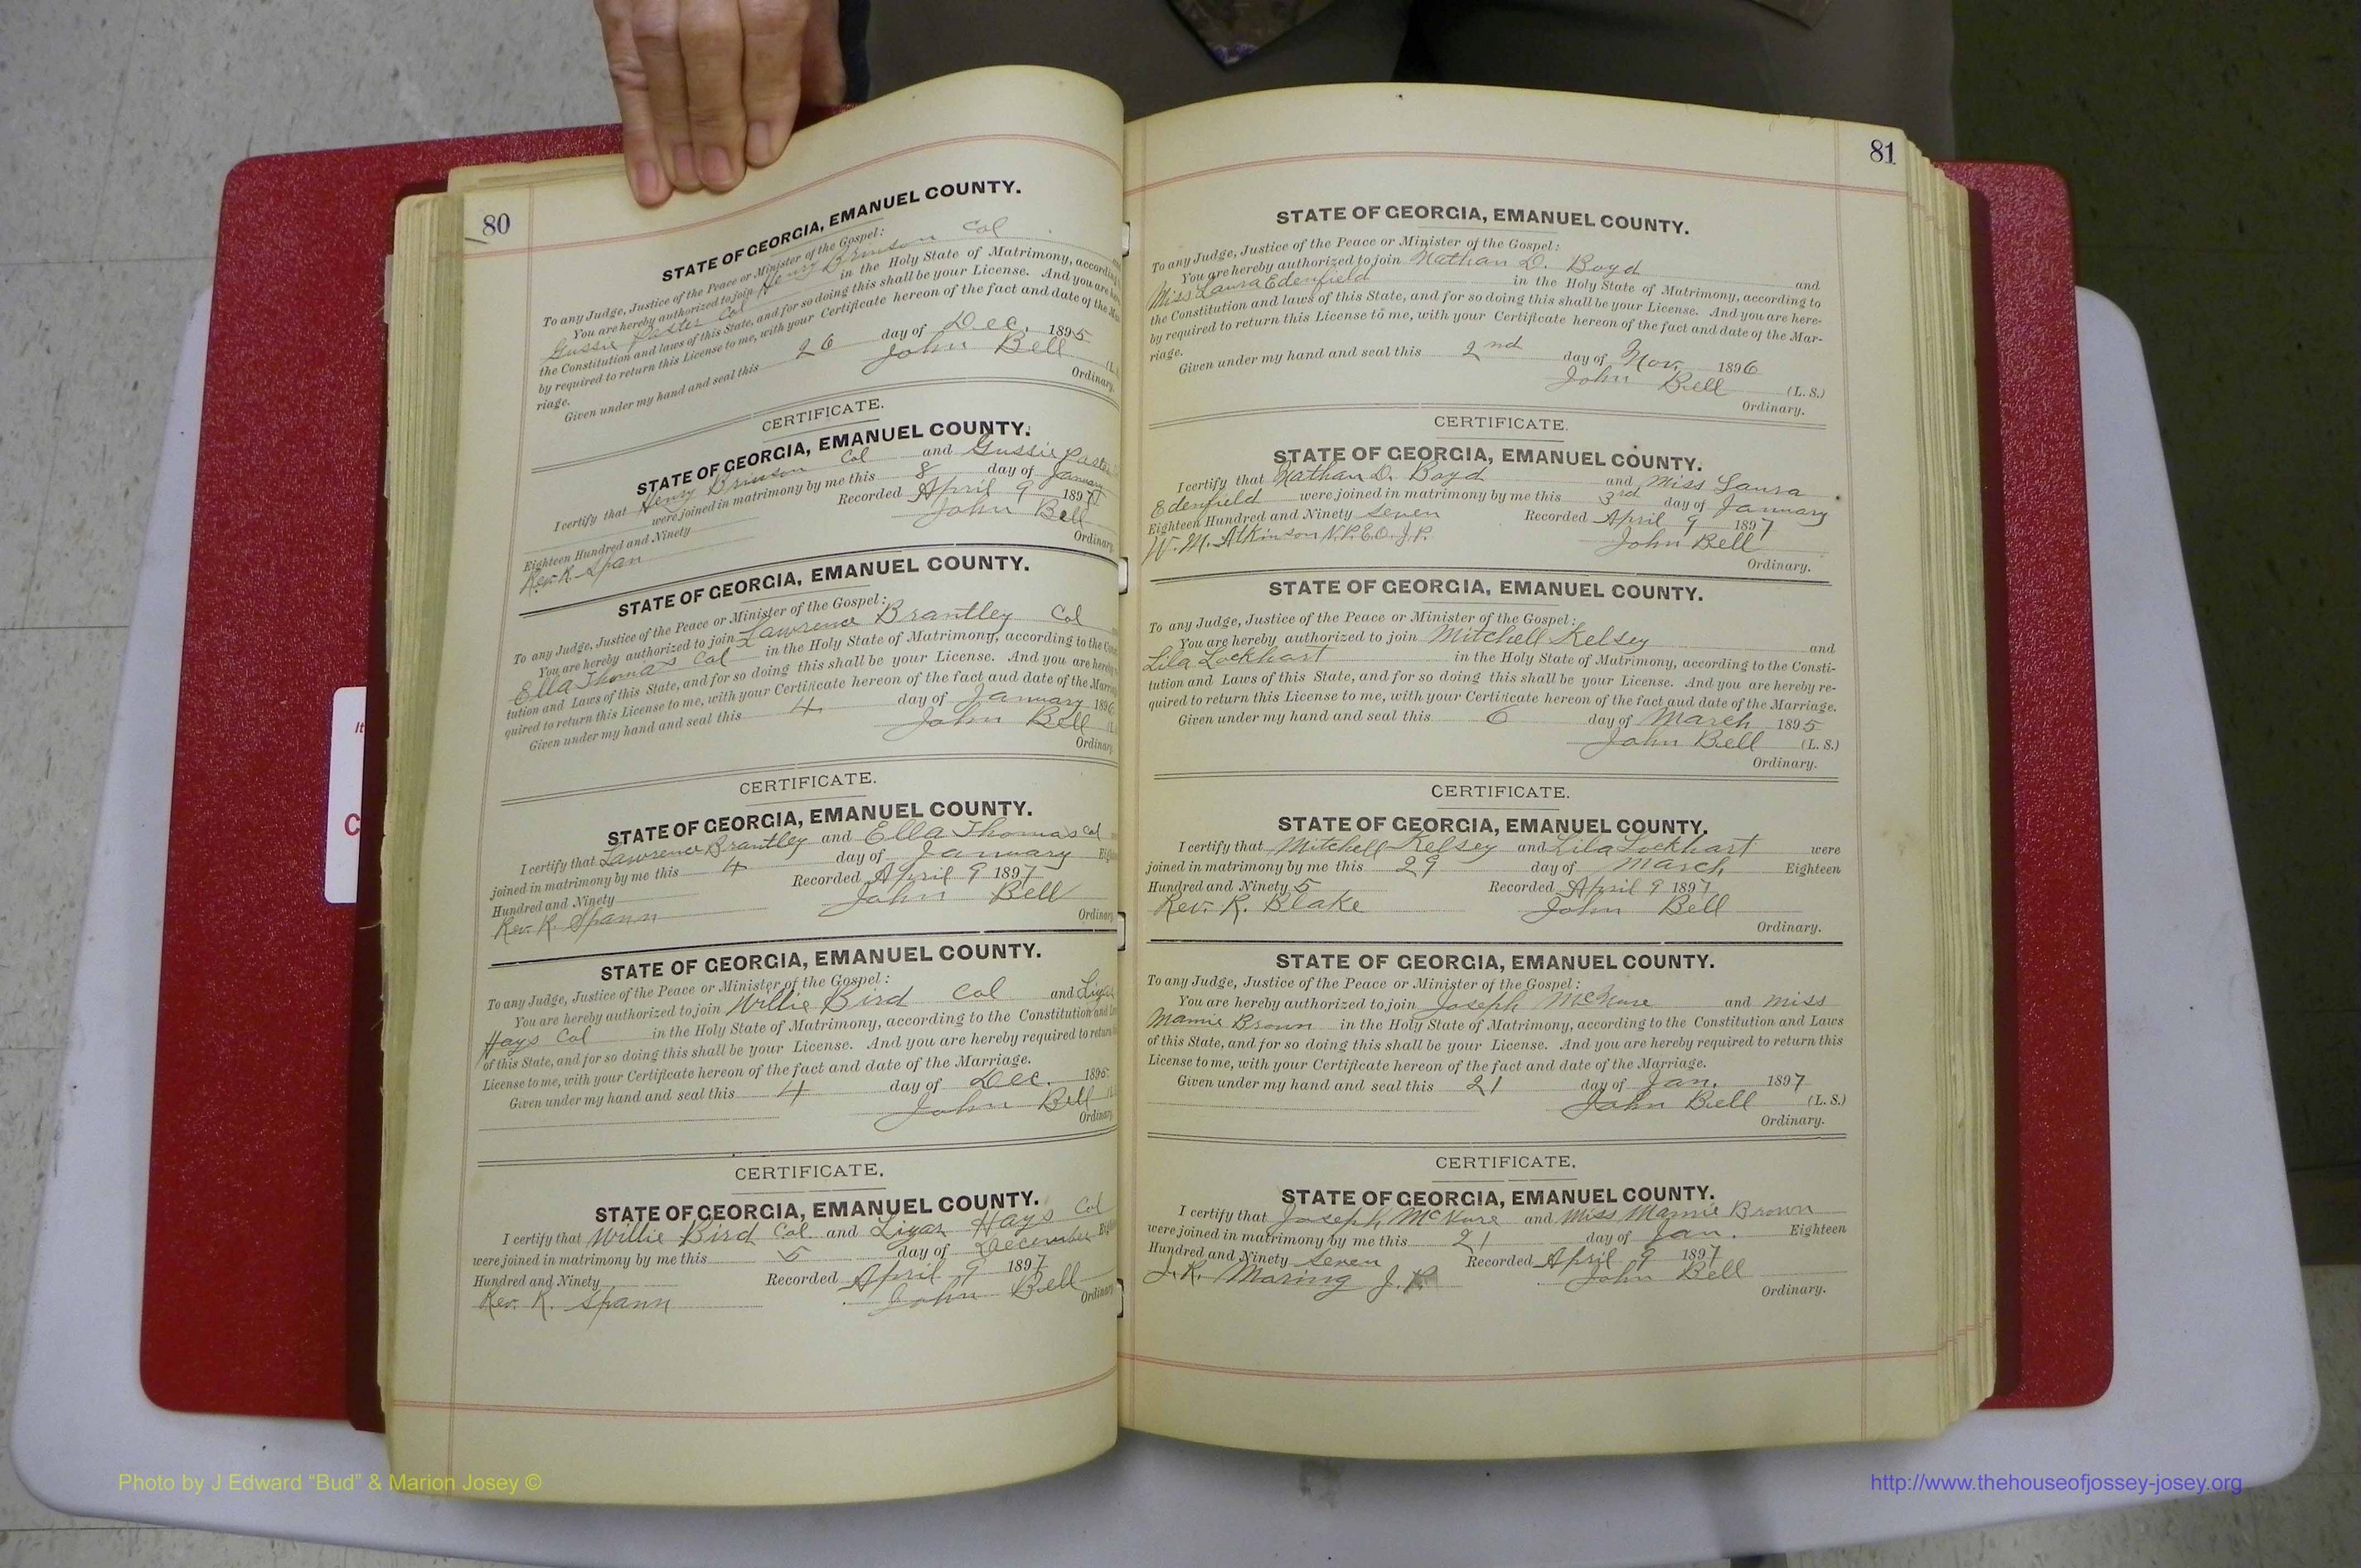 80
STATE OF GEORGIA, EMANUEL COUNTY.
To any Judge, Justice of the Peace or Minister of the Gospel:
You are hereby authorized to join Henry Brinson Col
Gussie Paster Col in the Holy State of Matrimony, according
the Constitution and laws of this State, and for so doing this shall be your License. And you are
by required to return this License to me, with your Certificate hereon of the fact and date of the
riage.
Given under my hand and seal this 26 day of Dec. 1895
John Bell
Ordinary.
CERTIFICATE.
STATE OF GEORGIA, EMANUEL COUNTY.
I certify that Henry Brinson Col and Gussie
were joined in matrimony by me this 8 day of January
Eighteen Hundred and Ninety Recorded April 9 1897
Rev. R. Span John Bell
Ordinary.
STATE OF GEORGIA, EMANUEL COUNTY.
To any Judge, Justice of the Peace or Minister of the Gospel:
You are hereby authorized to join Lawrence Brantley Col
Ella Thomas Col in the Holy State of Matrimony, according to the
tution and Laws of this State, and for so doing this shall be your License. And you are
quired to return this License to me, with your Certificate hereon of the fact aud date of the
Given under my hand and seal this 4 day of January 1896
John Bell
Ordinary
CERTIFICATE.
STATE OF GEORGIA, EMANUEL COUNTY.
I certify that Lawrence Brantley and Ella Thomas Col
joined in matrimony by me this 4 day of January
Hundred and Ninety Recorded April 9 1897
Rev. R. Spann John Bell
Ordinary
STATE OF GEORGIA, EMANUEL COUNTY.
To any Judge, Justice of the Peace or Minister of the Gospel:
You are hereby authorized to join Willie Bird Col and
Hays Col in the Holy State of Matrimony, according to the Constitution and
of this State, and for so doing this shall be your License. And you are hereby required to return
License to me, with your Certificate hereon of the fact and date of the Marriage.
Given under my hand and seal this 4 day of Dec. 1895
John Bell
Ordinary
CERTIFICATE.
STATE OF GEORGIA, EMANUEL COUNTY.
I certify that Willie Bird Col and Lizar Hays Col
were joined in matrimony by me this 5 day of December
Hundred and Ninety Recorded April 9 1897
Rev. R. Spann John Bell
Ordinary
81
STATE OF GEORGIA, EMANUEL COUNTY.
To any Judge, Justice of the Peace or Minister of the Gospel:
You are hereby authorized to join Nathan D. Boyd and
Miss Laura Edenfield in the Holy State of Matrimony, according to
the Constitution and laws of this State, and for so doing this shall be your License. And you are here-
by required to return this License to me, with your Certificate hereon of the fact and date of the Mar-
riage.
Given under my hand and seal this 2nd day of Nov. 1896
John Bell (L. S.)
Ordinary.
CERTIFICATE.
STATE OF GEORGIA, EMANUEL COUNTY.
I certify that Nathan D. Boyd and Miss Laura
Edenfield were joined in matrimony by me this 3rd day of January
Eighteen Hundred and Ninety Seven Recorded April 9 1897
W. M. Atkinson N.P.E.O. J.P. John Bell
Ordinary.
STATE OF GEORGIA, EMANUEL COUNTY.
To any Judge, Justice of the Peace or Minister of the Gospel:
You are hereby authorized to join Mitchell Kelsey and
Lila Lockhart in the Holy State of Matrimony, according to the Consti-
tution and Laws of this State, and for so doing this shall be your License. And you are hereby re-
quired to return this License to me, with your Certificate hereon of the fact aud date of the Marriage.
Given under my hand and seal this 6 day of March 1895
John Bell (L. S.)
Ordinary.
CERTIFICATE.
STATE OF GEORGIA, EMANUEL COUNTY.
I certify that Mitchell Kelsey and Lila Lockhart were
joined in matrimony by me this 29 day of March Eighteen
Hundred and Ninety 5 Recorded April 9 1897
Rev. R. Blake John Bell
Ordinary.
STATE OF GEORGIA, EMANUEL COUNTY.
To any Judge, Justice of the Peace or Minister of the Gospel:
You are hereby authorized to join Joseph McNure and Miss
Mamie Brown in the Holy State of Matrimony, according to the Constitution and Laws
of this State, and for so doing this shall be your License. And you are hereby required to return this
License to me, with your Certificate hereon of the fact and date of the Marriage.
Given under my hand and seal this 21 day of Jan. 1897
John Bell (L. S.)
Ordinary.
CERTIFICATE.
STATE OF GEORGIA, EMANUEL COUNTY.
I certify that Joseph McNure and Miss Mamie Brown
were joined in matrimony by me this 21 day of Jan. Eighteen
Hundred and Ninety Seven Recorded April 9 1897
J. R. Maring J. P. John Bell
Ordinary.
Photo by J Edward “Bud” & Marion Josey ©
http://www.thehouseofjossey-josey.org